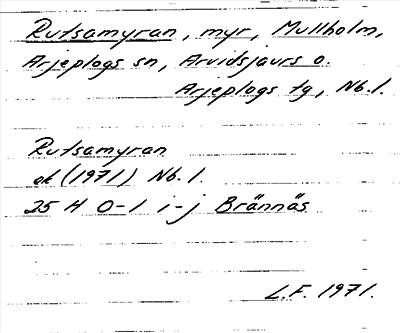 Rutsamyran, myr, Mullholm,
Arjeplogs sn, Arvidsjaurs o.
Arjeplogs tg, Nb. l.
Rutsamyran
ek (1971) Nb. l.
25 H 0-1 i-j Brännäs
L.F. 1971.